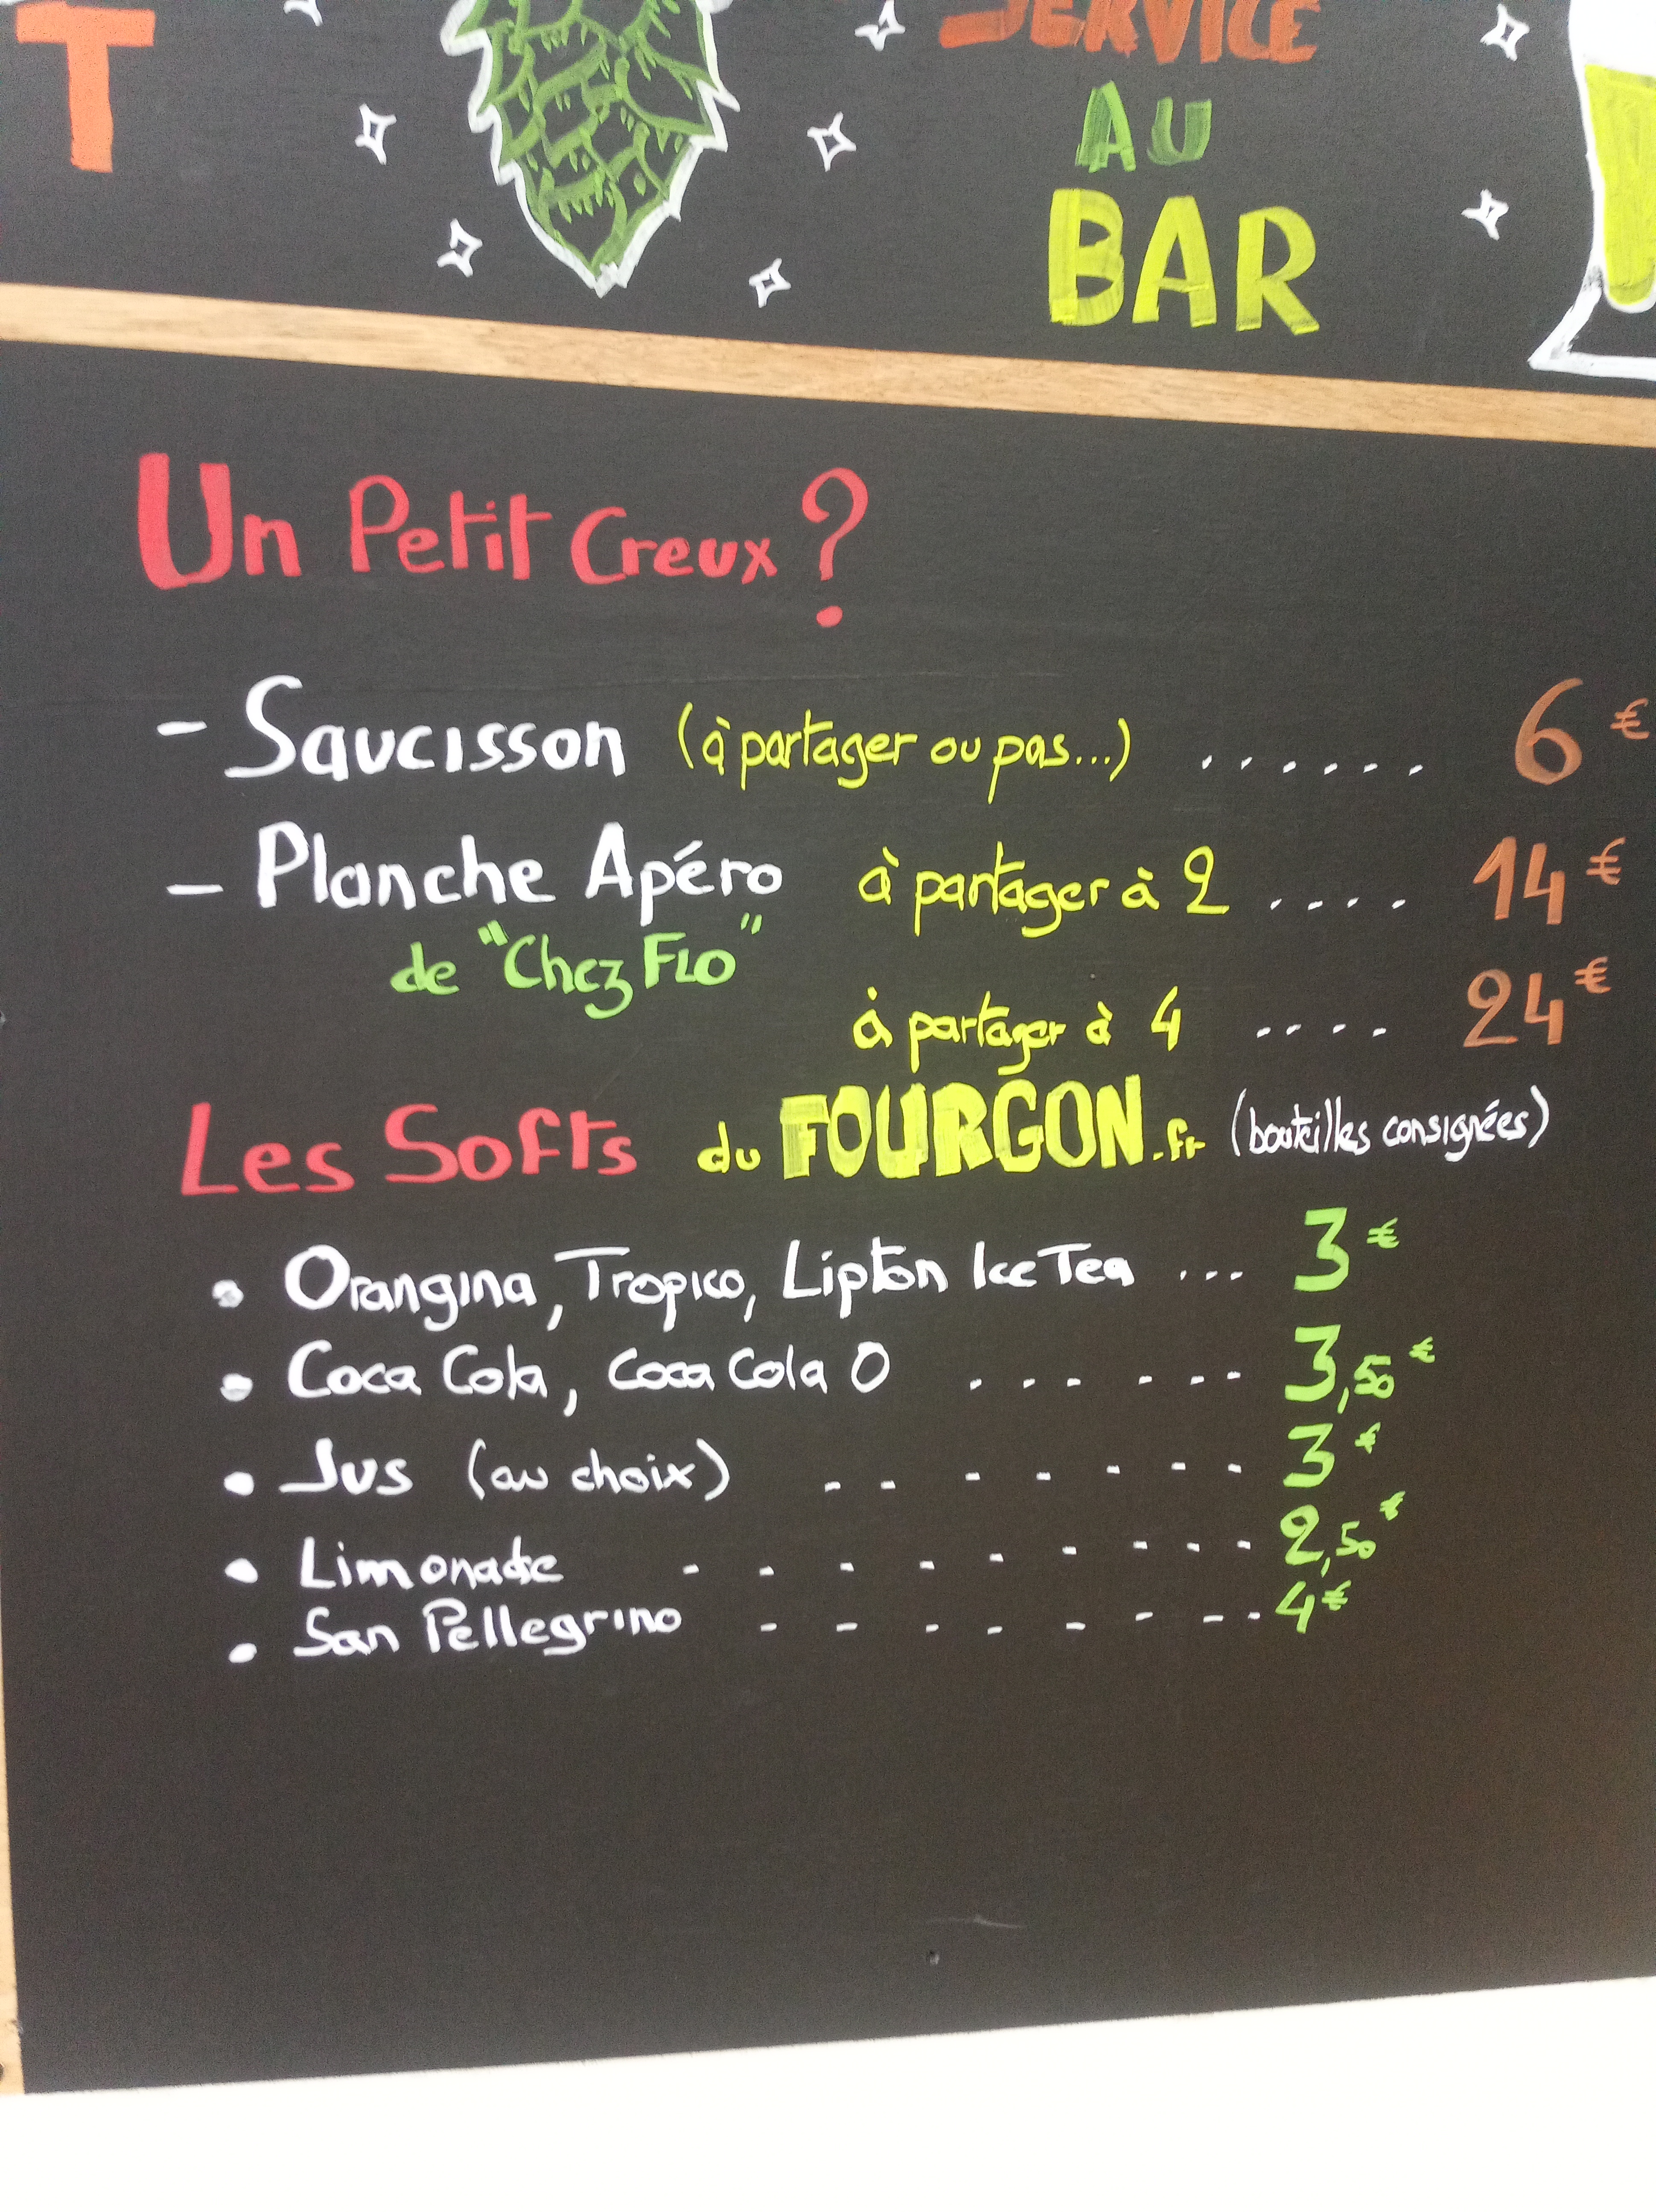 T
SERVICE
AU
BAR
Un Petit Creux ?
- Saucisson (à partager ou pas...) ...... 6 €
- Planche Apéro à partager à 2 .... 14 €
de "Chez FLO"
à partager à 4 .... 24 €
Les Softs du FOURGON.fr (bouteilles consignées)
• Orangina, Tropico, Lipton Ice Tea ... 3 €
• Coca Cola, Coca Cola 0 ...... 3,50 €
• Jus (au choix) ....... 3 €
• Limonade ........ 2,50 €
• San Pellegrino ........ 4 €